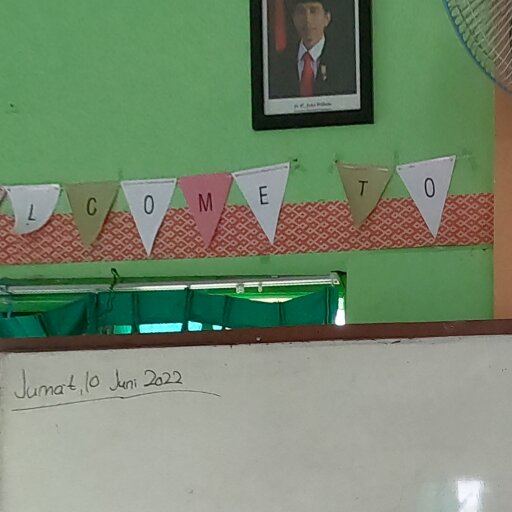 Ir. H. Joko Widodo
LCOME TO
Jumat, 10 Juni 2022